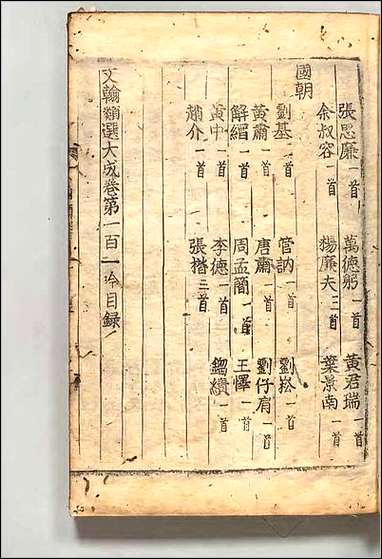 張思廉一首 萬德躬一首 黃君瑞一首
余叔容一首 楊廉夫二首 葉景南一首
國朝
劉基一首 管訥一首 劉崧一首
黃肅一首 唐肅一首 劉仔肩一首
解縉一首 周孟簡一首 王懌一首
黃中一首 李德一首 鎦績一首
趙介一首 張楷三首
文翰類選大成卷第一百一〇目録